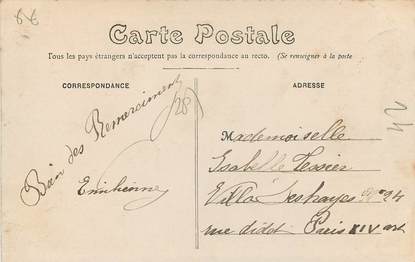 86
Carte Postale
Tous les pays étrangers n'acceptent pas la correspondance au recto. (Se renseigner à la poste
CORRESPONDANCE
Bien des Remerciments
Emilienne
28
ADRESSE
Mademoiselle
Isabelle Tessier
Villa Deshayes Nº 24
rue didot Paris XIV arr
24